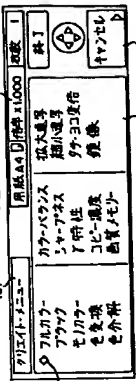 クリエイト・メニュー
用紙A4 倍率×1.000 枚数 1
フルカラー
ブラック
モノカラー
色変換
色分解
カラーバランス
シャープネス
γ特性
コピー濃度
画質メモリー
拡大連写
縮小連写
タテ・ヨコ変倍
鏡像
終了
キャンセル